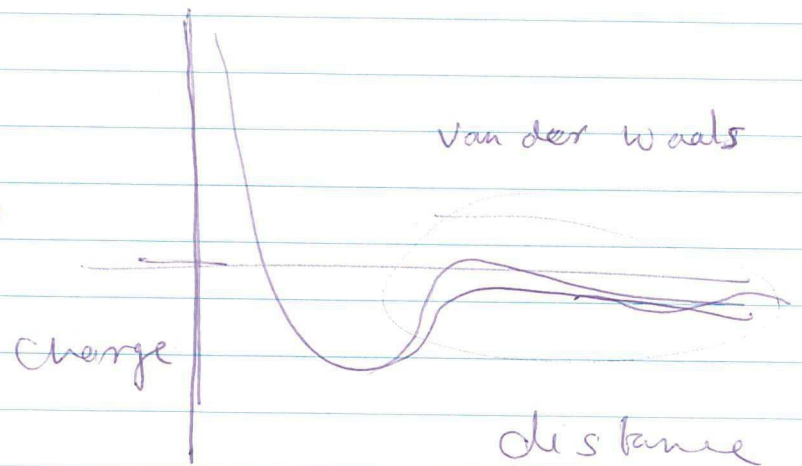 van der waals
Charge
distance